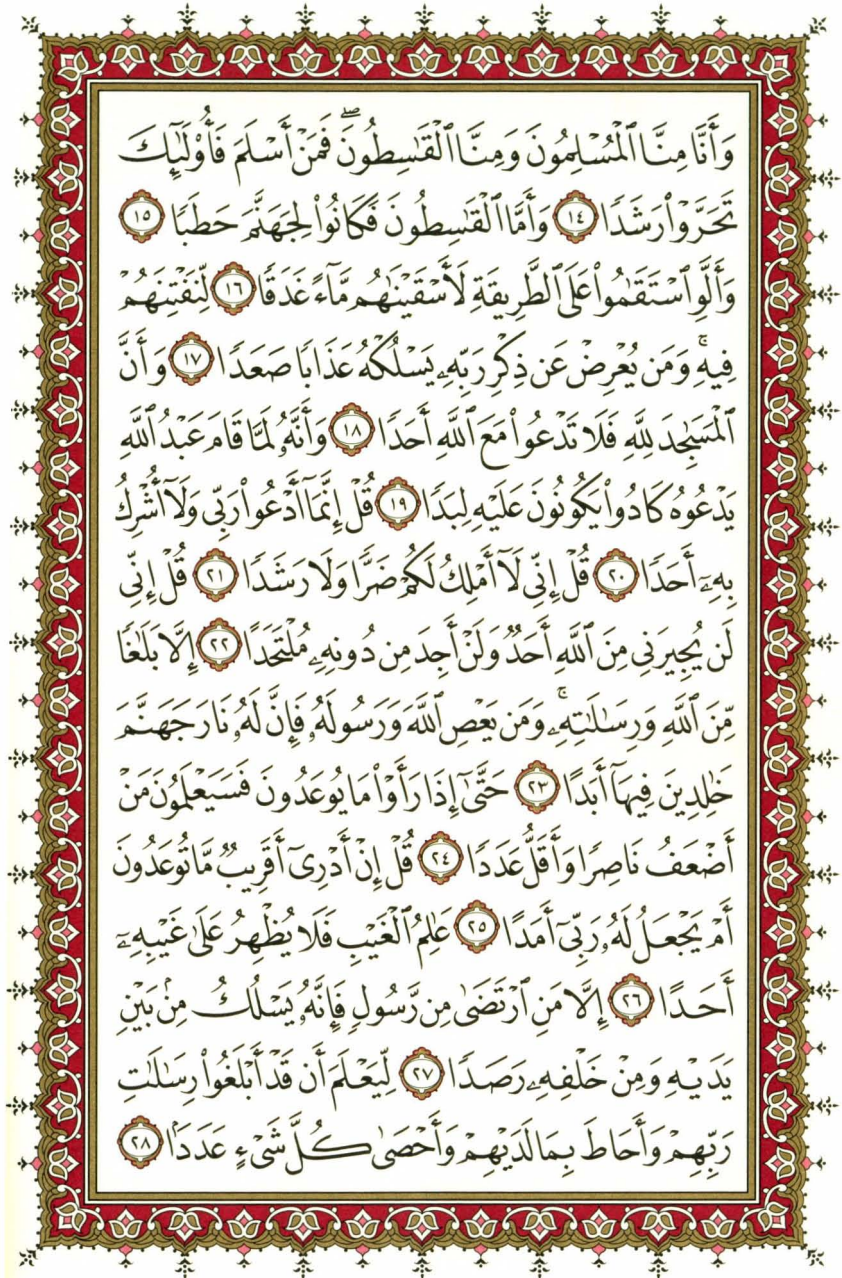 وَأَنَّا مِنَّا ٱلْمُسْلِمُونَ وَمِنَّا ٱلْقَٰسِطُونَۖ فَمَنْ أَسْلَمَ فَأُو۟لَٰٓئِكَ
تَحَرَّوْا۟ رَشَدًا ١٤ وَأَمَّا ٱلْقَٰسِطُونَ فَكَانُوا۟ لِجَهَنَّمَ حَطَبًا ١٥
وَأَلَّوِ ٱسْتَقَٰمُوا۟ عَلَى ٱلطَّرِيقَةِ لَأَسْقَيْنَٰهُم مَّآءً غَدَقًا ١٦ لِّنَفْتِنَهُمْ
فِيهِۚ وَمَن يُعْرِضْ عَن ذِكْرِ رَبِّهِۦ يَسْلُكْهُ عَذَابًا صَعَدًا ١٧ وَأَنَّ
ٱلْمَسَٰجِدَ لِلَّهِ فَلَا تَدْعُوا۟ مَعَ ٱللَّهِ أَحَدًا ١٨ وَأَنَّهُۥ لَمَّا قَامَ عَبْدُ ٱللَّهِ
يَدْعُوهُ كَادُوا۟ يَكُونُونَ عَلَيْهِ لِبَدًا ١٩ قُلْ إِنَّمَآ أَدْعُوا۟ رَبِّى وَلَآ أُشْرِكُ
بِهِۦٓ أَحَدًا ٢٠ قُلْ إِنِّى لَآ أَمْلِكُ لَكُمْ ضَرًّا وَلَا رَشَدًا ٢١ قُلْ إِنِّى
لَن يُجِيرَنِى مِنَ ٱللَّهِ أَحَدٌ وَلَنْ أَجِدَ مِن دُونِهِۦ مُلْتَحَدًا ٢٢ إِلَّا بَلَٰغًا
مِّنَ ٱللَّهِ وَرِسَٰلَٰتِهِۦۚ وَمَن يَعْصِ ٱللَّهَ وَرَسُولَهُۥ فَإِنَّ لَهُۥ نَارَ جَهَنَّمَ
خَٰلِدِينَ فِيهَآ أَبَدًا ٢٣ حَتَّىٰٓ إِذَا رَأَوْا۟ مَا يُوعَدُونَ فَسَيَعْلَمُونَ مَنْ
أَضْعَفُ نَاصِرًا وَأَقَلُّ عَدَدًا ٢٤ قُلْ إِنْ أَدْرِىٓ أَقَرِيبٌ مَّا تُوعَدُونَ
أَمْ يَجْعَلُ لَهُۥ رَبِّىٓ أَمَدًا ٢٥ عَٰلِمُ ٱلْغَيْبِ فَلَا يُظْهِرُ عَلَىٰ غَيْبِهِۦٓ
أَحَدًا ٢٦ إِلَّا مَنِ ٱرْتَضَىٰ مِن رَّسُولٍ فَإِنَّهُۥ يَسْلُكُ مِنۢ بَيْنِ
يَدَيْهِ وَمِنْ خَلْفِهِۦ رَصَدًا ٢٧ لِّيَعْلَمَ أَن قَدْ أَبْلَغُوا۟ رِسَٰلَٰتِ
رَبِّهِمْ وَأَحَاطَ بِمَا لَدَيْهِمْ وَأَحْصَىٰ كُلَّ شَىْءٍ عَدَدًۢا ٢٨